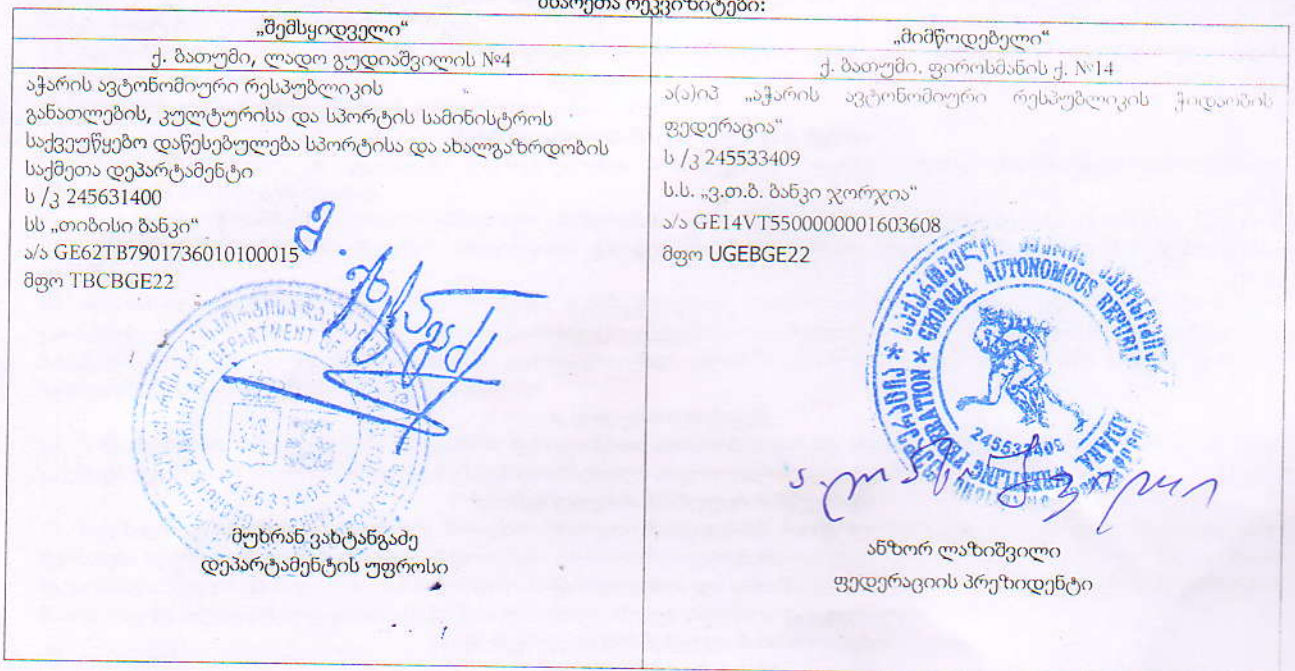 მხარეთა რეკვიზიტები:
„შემსყიდველი“
ქ. ბათუმი, ლადო გუდიაშვილის №4
აჭარის ავტონომიური რესპუბლიკის
განათლების, კულტურისა და სპორტის სამინისტროს
საქვეუწყებო დაწესებულება სპორტისა და ახალგაზრდობის
საქმეთა დეპარტამენტი
ს /კ 245631400
სს „თიბისი ბანკი“
ა/ა GE62TB7901736010100015
მფო TBCBGE22
DEPARTMENT
245631400
მუხრან ვახტანგაძე
დეპარტამენტის უფროსი
„მიმწოდებელი“
ქ. ბათუმი, ფიროსმანის ქ. №14
ა(ა)იპ „აჭარის ავტონომიური რესპუბლიკის ჭიდაობის
ფედერაცია“
ს /კ 245533409
ს.ს. „ვ.თ.ბ. ბანკი ჯორჯია“
ა/ა GE14VT5500000001603608
მფო UGEBGE22
GEORGIA AUTONOMOUS REPUBLIC
WRESTLING FEDERATION
ა ლაზიშვილი
ანზორ ლაზიშვილი
ფედერაციის პრეზიდენტი